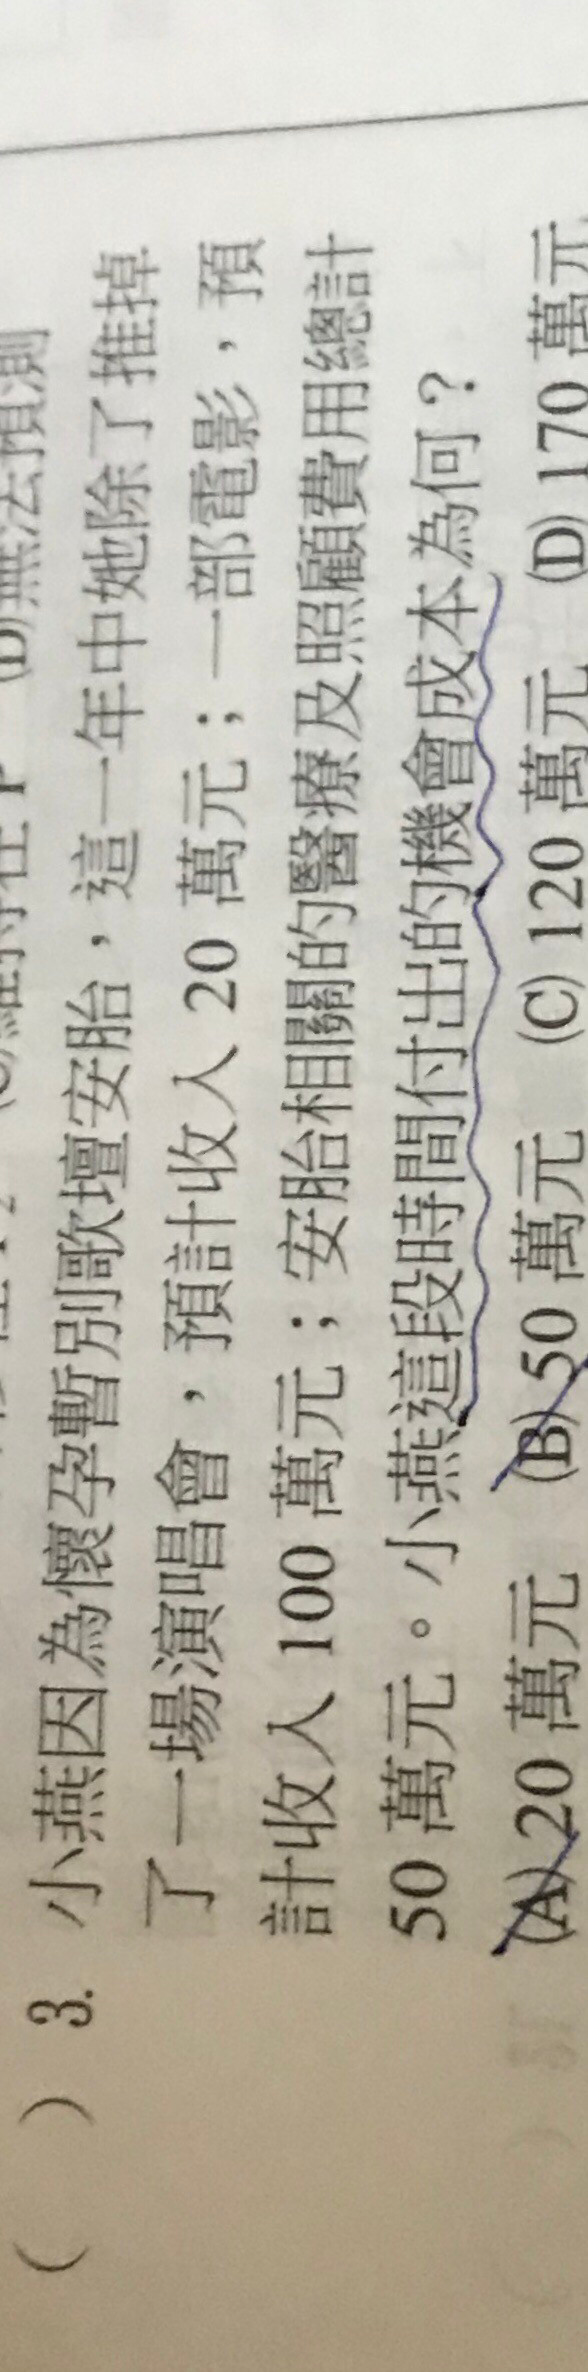 (D)無法預測
( ) 3. 小燕因為懷孕暫別歌壇安胎，這一年中她除了推掉
了一場演唱會，預計收入 20 萬元；一部電影，預
計收入 100 萬元；安胎相關的醫療及照顧費用總計
50 萬元。小燕這段時間付出的機會成本為何？
(A) 20 萬元 (B) 50 萬元 (C) 120 萬元 (D) 170 萬元